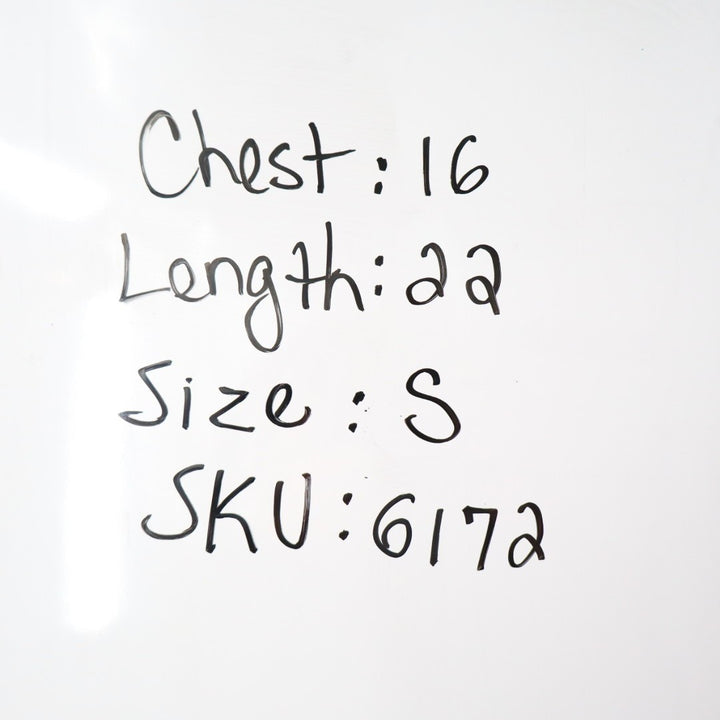 Chest: 16
Length: 22
Size: S
SKU: 6172